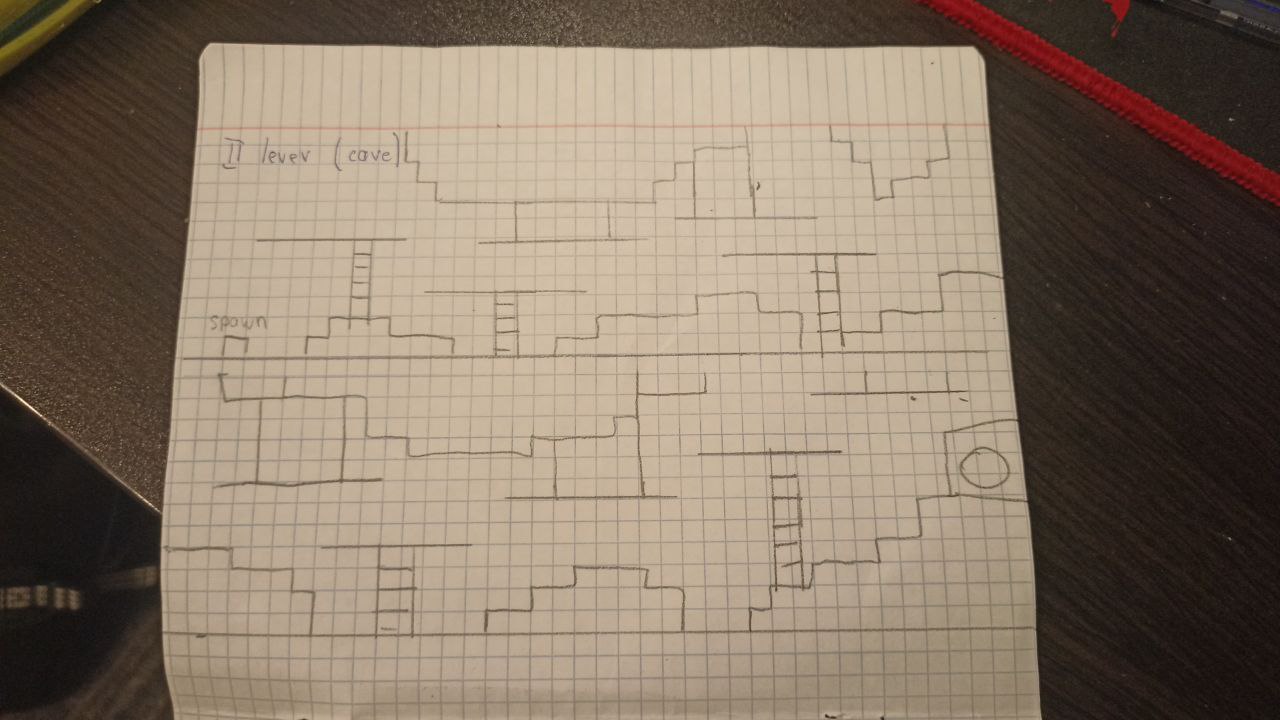 II lever (cave)
spawn